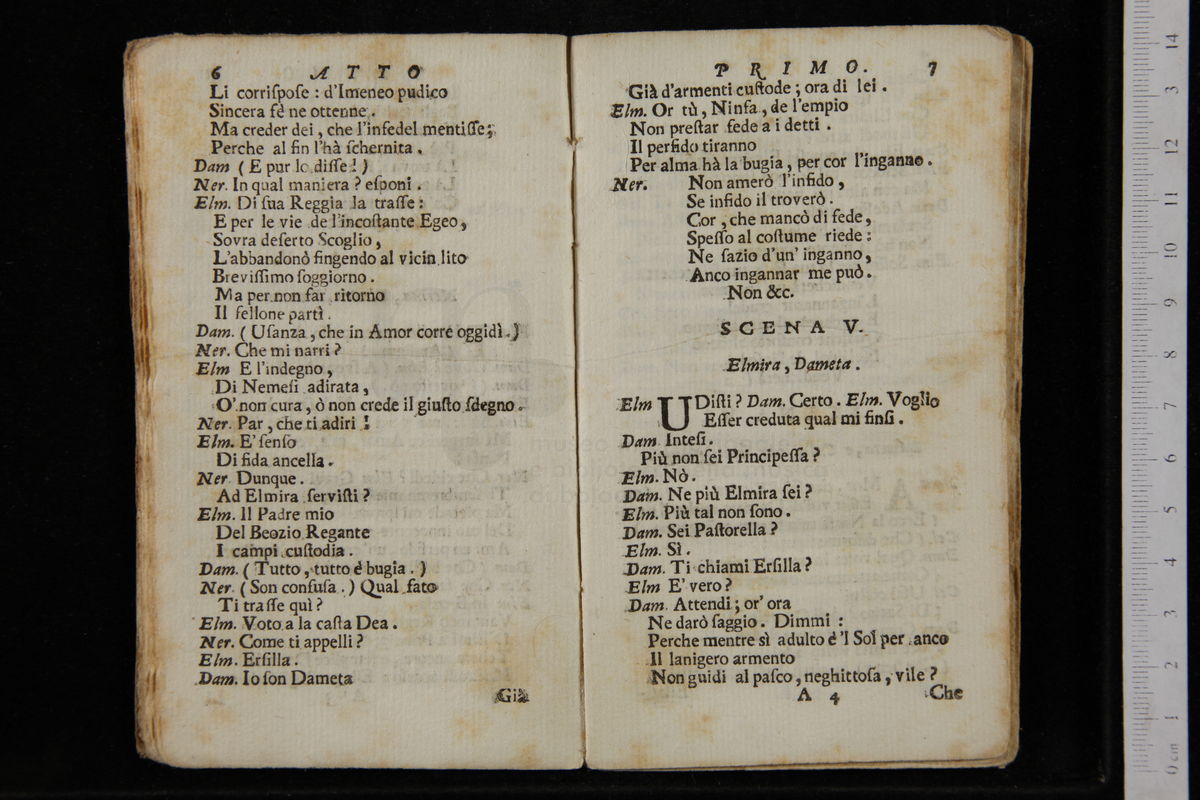 6 ATTO
Li corriſpoſe : d'Imeneo pudico
Sincera fè ne ottenne .
Ma creder dei , che l'infedel mentiſſe ;
Perche al fin l'hà ſchernita .
Dam ( E pur lo diſſe ! )
Ner. In qual maniera ? eſponi .
Elm. Di ſua Reggia la traſſe :
E per le vie de l'incoſtante Egeo ,
Sovra deſerto Scoglio ,
L'abbandonò fingendo al vicin lito
Breviſſimo ſoggiorno .
Ma per non far ritorno
Il fellone partì .
Dam. ( Uſanza , che in Amor corre oggidì . )
Ner. Che mi narri ?
Elm E l'indegno ,
Di Nemeſi adirata ,
O' non cura , ò non crede il giuſto ſdegno .
Ner. Par , che ti adiri !
Elm. E' ſenſo
Di fida ancella .
Ner Dunque .
Ad Elmira ſerviſti ?
Elm. Il Padre mio
Del Beozio Regante
I campi cuſtodia .
Dam. ( Tutto , tutto è bugia . )
Ner ( Son confuſa . ) Qual fato
Ti traſſe quì ?
Elm. Voto a la caſta Dea .
Ner. Come ti appelli ?
Elm. Erſilla .
Dam. Io ſon Dameta
Già
PRIMO. 7
Già d'armenti cuſtode ; ora di lei .
Elm. Or tù , Ninfa , de l'empio
Non preſtar fede a i detti .
Il perfido tiranno
Per alma hà la bugia , per cor l'inganno .
Ner. Non amerò l'infido ,
Se infido il troverò .
Cor , che mancò di fede ,
Speſſo al coſtume riede :
Ne ſazio d'un' inganno ,
Anco ingannar me può .
Non &c.
SCENA V.
Elmira , Dameta .
Elm UDiſti ? Dam. Certo . Elm. Voglio
Eſſer creduta qual mi finſi .
Dam Inteſi .
Più non ſei Principeſſa ?
Elm. Nò .
Dam. Ne più Elmira ſei ?
Elm. Più tal non ſono .
Dam. Sei Paſtorella ?
Elm. Sì .
Dam. Ti chiami Erſilla ?
Elm E' vero ?
Dam. Attendi ; or' ora
Ne darò ſaggio . Dimmi :
Perche mentre sì adulto è 'l Sol per anco
Il lanigero armento
Non guidi al paſco , neghittoſa , vile ?
A 4 Che
0 cm 1 2 3 4 5 6 7 8 9 10 11 12 13 14